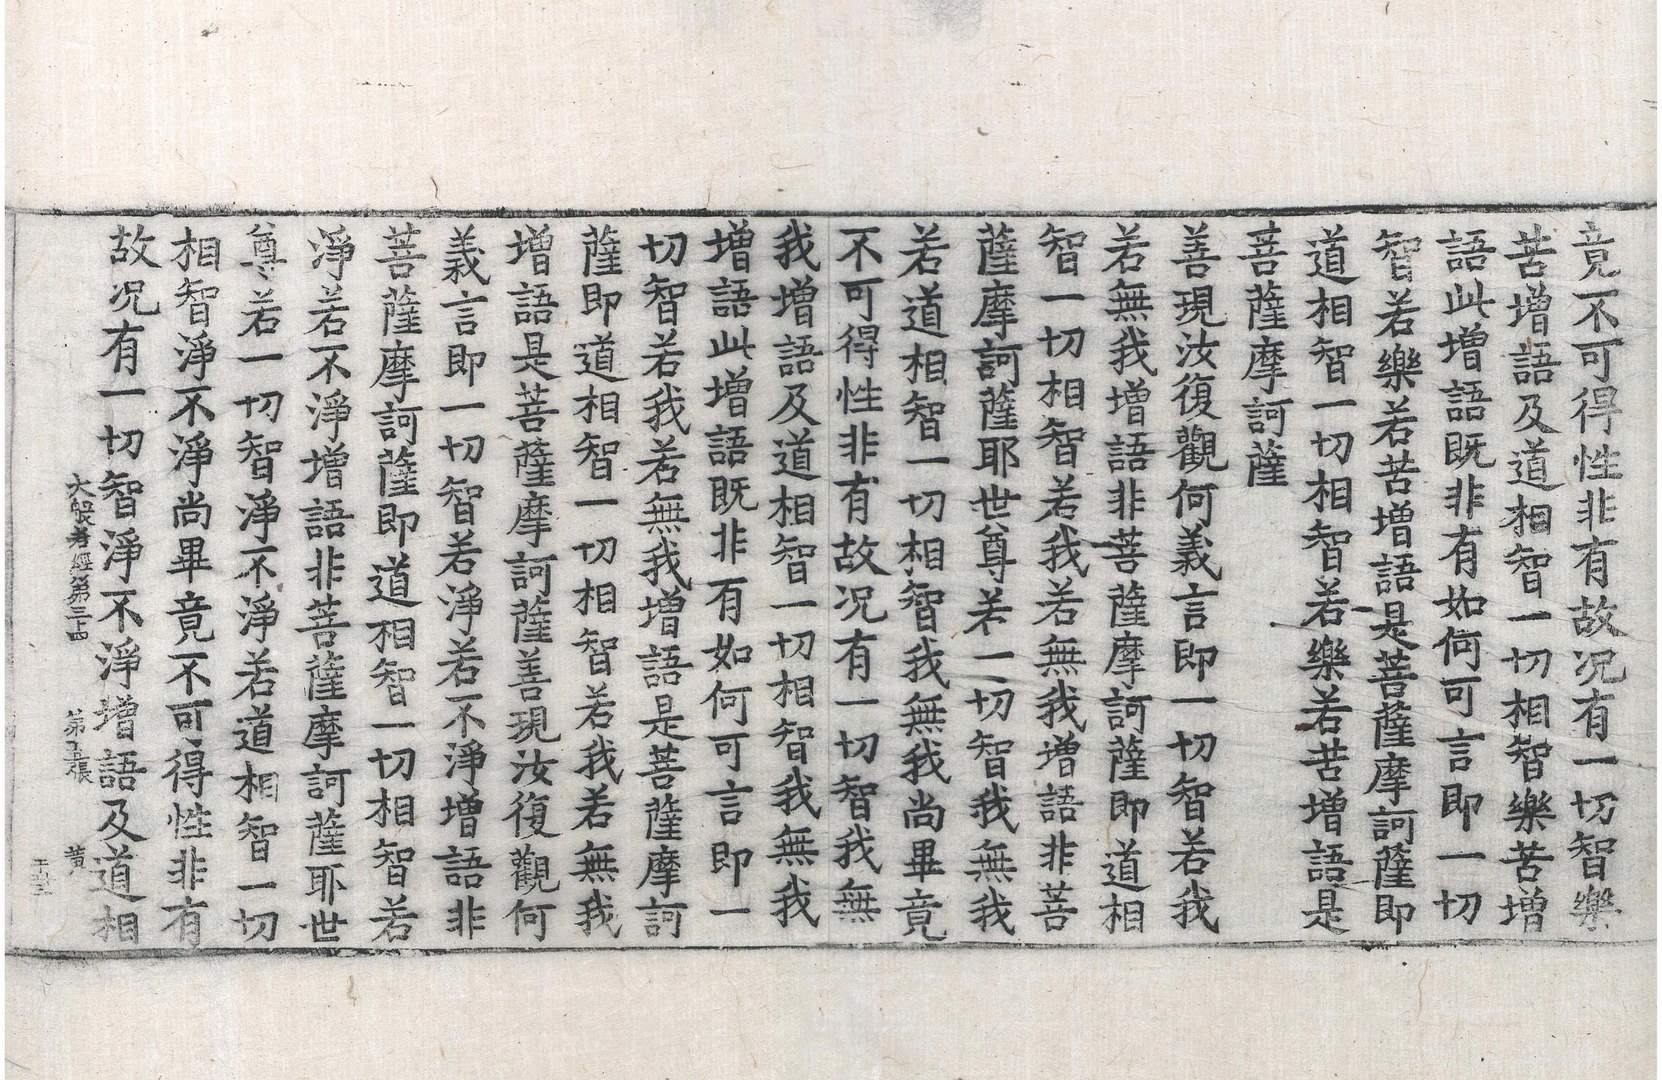 竟不可得性非有故况有一切智樂
苦增語及道相智一切相智樂苦增
語此增語既非有如何可言即一切
智若樂若苦增語是菩薩摩訶薩即
道相智一切相智若樂若苦增語是
菩薩摩訶薩
善現汝復觀何義言即一切智若我
若無我增語非菩薩摩訶薩即道相
智一切相智若我若無我增語非菩
薩摩訶薩耶世尊若一切智我無我
若道相智一切相智我無我尚畢竟
不可得性非有故况有一切智我無
我增語及道相智一切相智我無我
增語此增語既非有如何可言即一
切智若我若無我增語是菩薩摩訶
薩即道相智一切相智若我若無我
增語是菩薩摩訶薩善現汝復觀何
義言即一切智若淨若不淨增語非
菩薩摩訶薩即道相智一切相智若
淨若不淨增語非菩薩摩訶薩耶世
尊若一切智淨不淨若道相智一切
相智淨不淨尚畢竟不可得性非有
故况有一切智淨不淨增語及道相
大般若經第三十四 第五張 黄